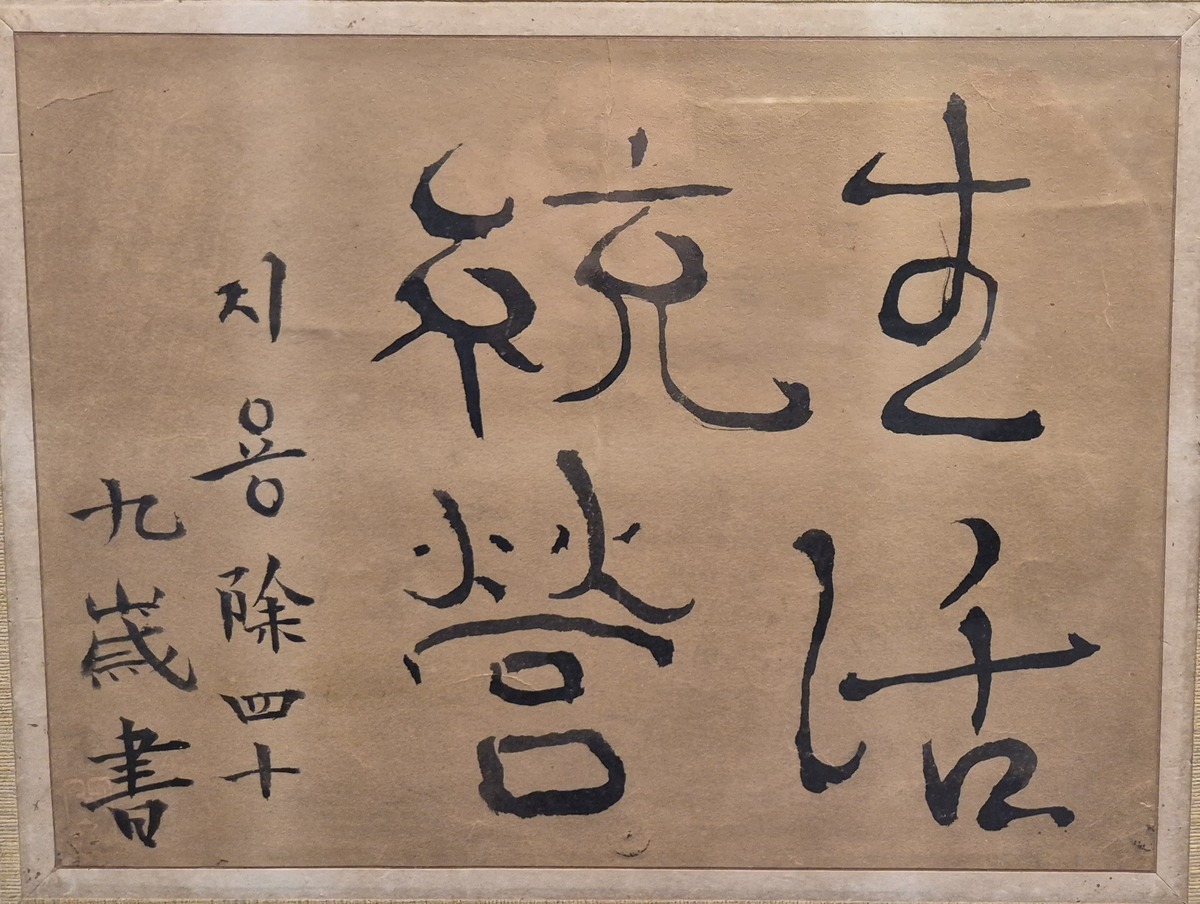 生活
統營
지용除四十
九歲書